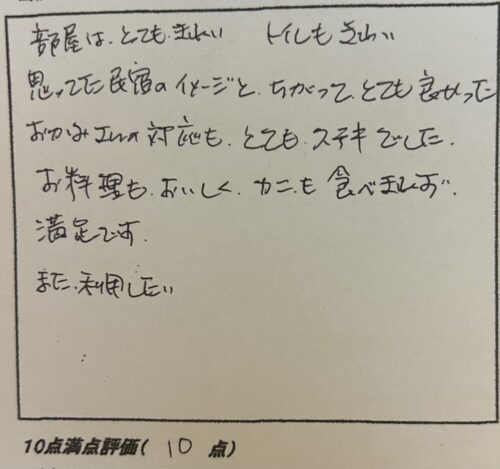 部屋は、とても、きれい　トイレもきれい
思ってた民宿のイメージと、ちがって、とても良かった
おかみさんの対応も、とても、ステキでした。
お料理も、おいしく、カニも食べきれず
満足です。
また、利用したい
10点満点評価( 10 点)